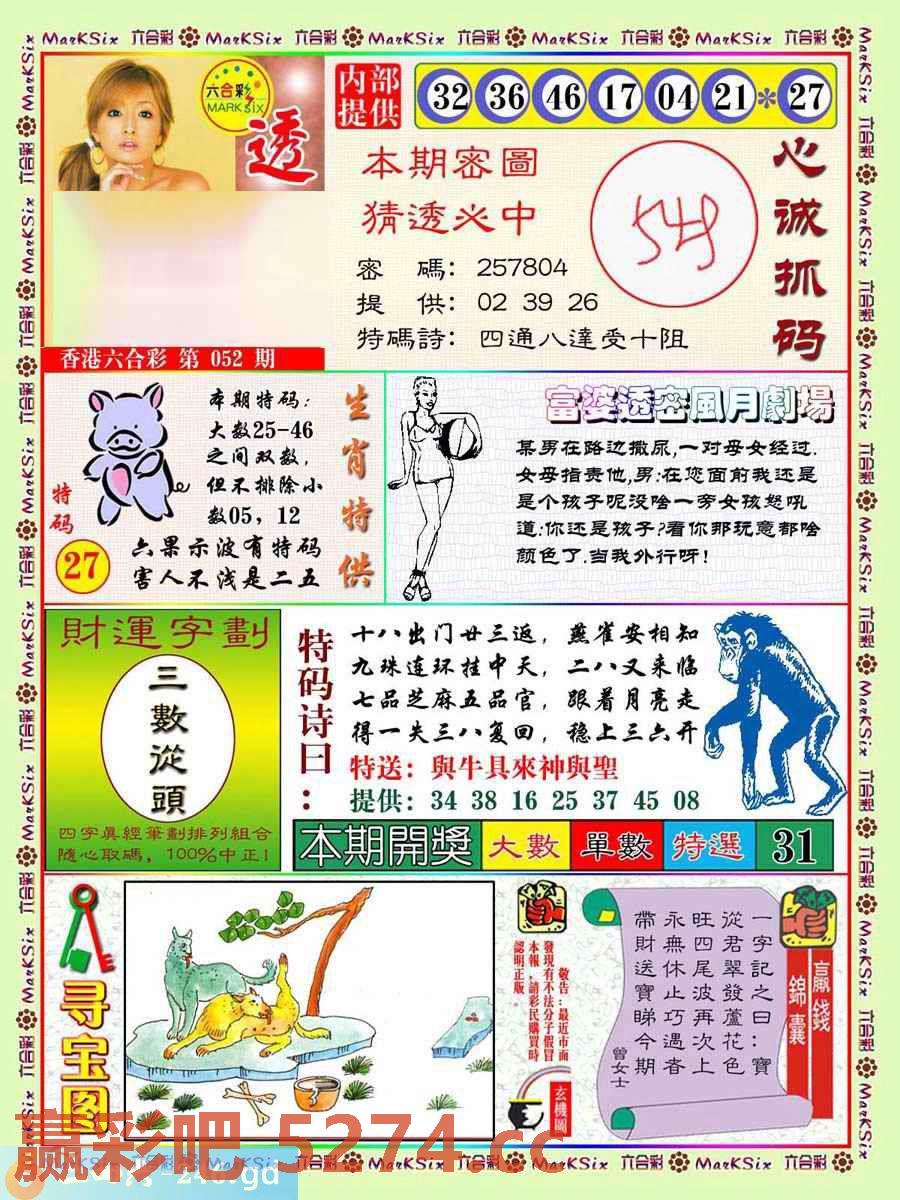 MarKSix 六合彩 MarKSix 六合彩 MarKSix 六合彩 MarKSix 六合彩 MarKSix 六合彩 MarKSix 六合彩
六合彩
MARK SIX
透
内部
提供
32 36 46 17 04 21 * 27
本期密圖
猜透必中
密 碼: 257804
提 供: 02 39 26
特碼詩: 四通八達受十阻
心诚抓码
香港六合彩 第 052 期
特码
27
本期特码:
大数25-46
之间双数,
但不排除小
数05, 12
六果示波有特码
害人不浅是二五
生肖特供
富婆透密風月劇場
某男在路边撒尿,一对母女经过.
女母指责他,男:在您面前我还是
是个孩子呢没啥一旁女孩怒吼
道:你还是孩子?看你那玩意都啥
颜色了.当我外行呀!
財運字劃
三數從頭
四字真經筆劃排列組合
隨心取碼, 100%中正!
特码诗曰:
十八出门廿三返, 燕雀安相知
九珠连环挂中天, 二八又来临
七品芝麻五品官, 跟着月亮走
得一失三八复回, 稳上三六开
特送: 與牛具來神與聖
提供: 34 38 16 25 37 45 08
本期開獎 大數 單數 特選 31
寻宝图
敬告:最近市面
發現有不法分子假冒
本報,請彩民購買時
認明正版。
玄機圖
一字記之曰:寶
從君翠發蘆花色
旺四尾波再次上
永無休止巧遇春
帶財送寶睇今期
曾女士
贏錢
錦囊
赢彩吧 5274.cc
MarKSix 六合彩 MarKSix 六合彩 MarKSix 六合彩